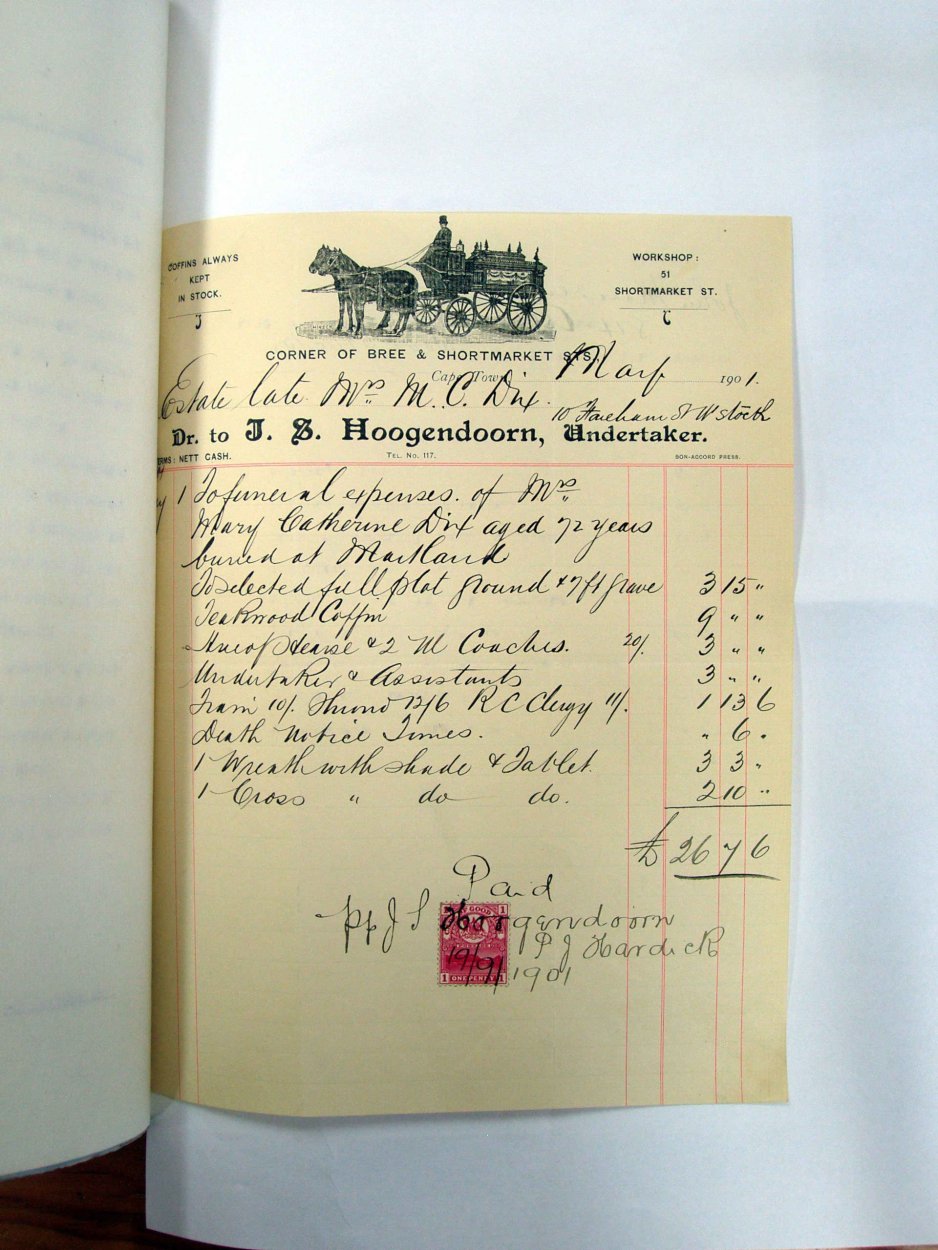 COFFINS ALWAYS
KEPT
IN STOCK.
WORKSHOP:
51
SHORTMARKET ST.
CORNER OF BREE & SHORTMARKET STS.
Cape Town, 1901.
Estate late Mrs M. C. Dix.
10 Fareham St W stock
Dr. to J. S. Hoogendoorn, Undertaker.
TERMS: NETT CASH.
TEL. NO. 117.
BON-ACCORD PRESS.
1 To funeral expenses of Mrs
Mary Catherine Dix aged 72 years
buried at Maitland
To selected full plot ground & 7 ft grave 3 15 "
Teakwood Coffin 9 " "
Hire of Hearse & 2 M Coaches. 20/. 3 " "
Undertaker & Assistants 3 " "
Train 10/. Shroud 12/6 R C Clergy 11/. 1 13 6
Death Notice Times. " 6 "
1 Wreath with shade & Tablet. 3 3 "
1 Cross " do do. 2 10 "
£ 26 7 6
Paid
pp J S Hoogendoorn
P J Hardick
19/9/1901
OF GOOD
1 1
1 ONE PENNY 1